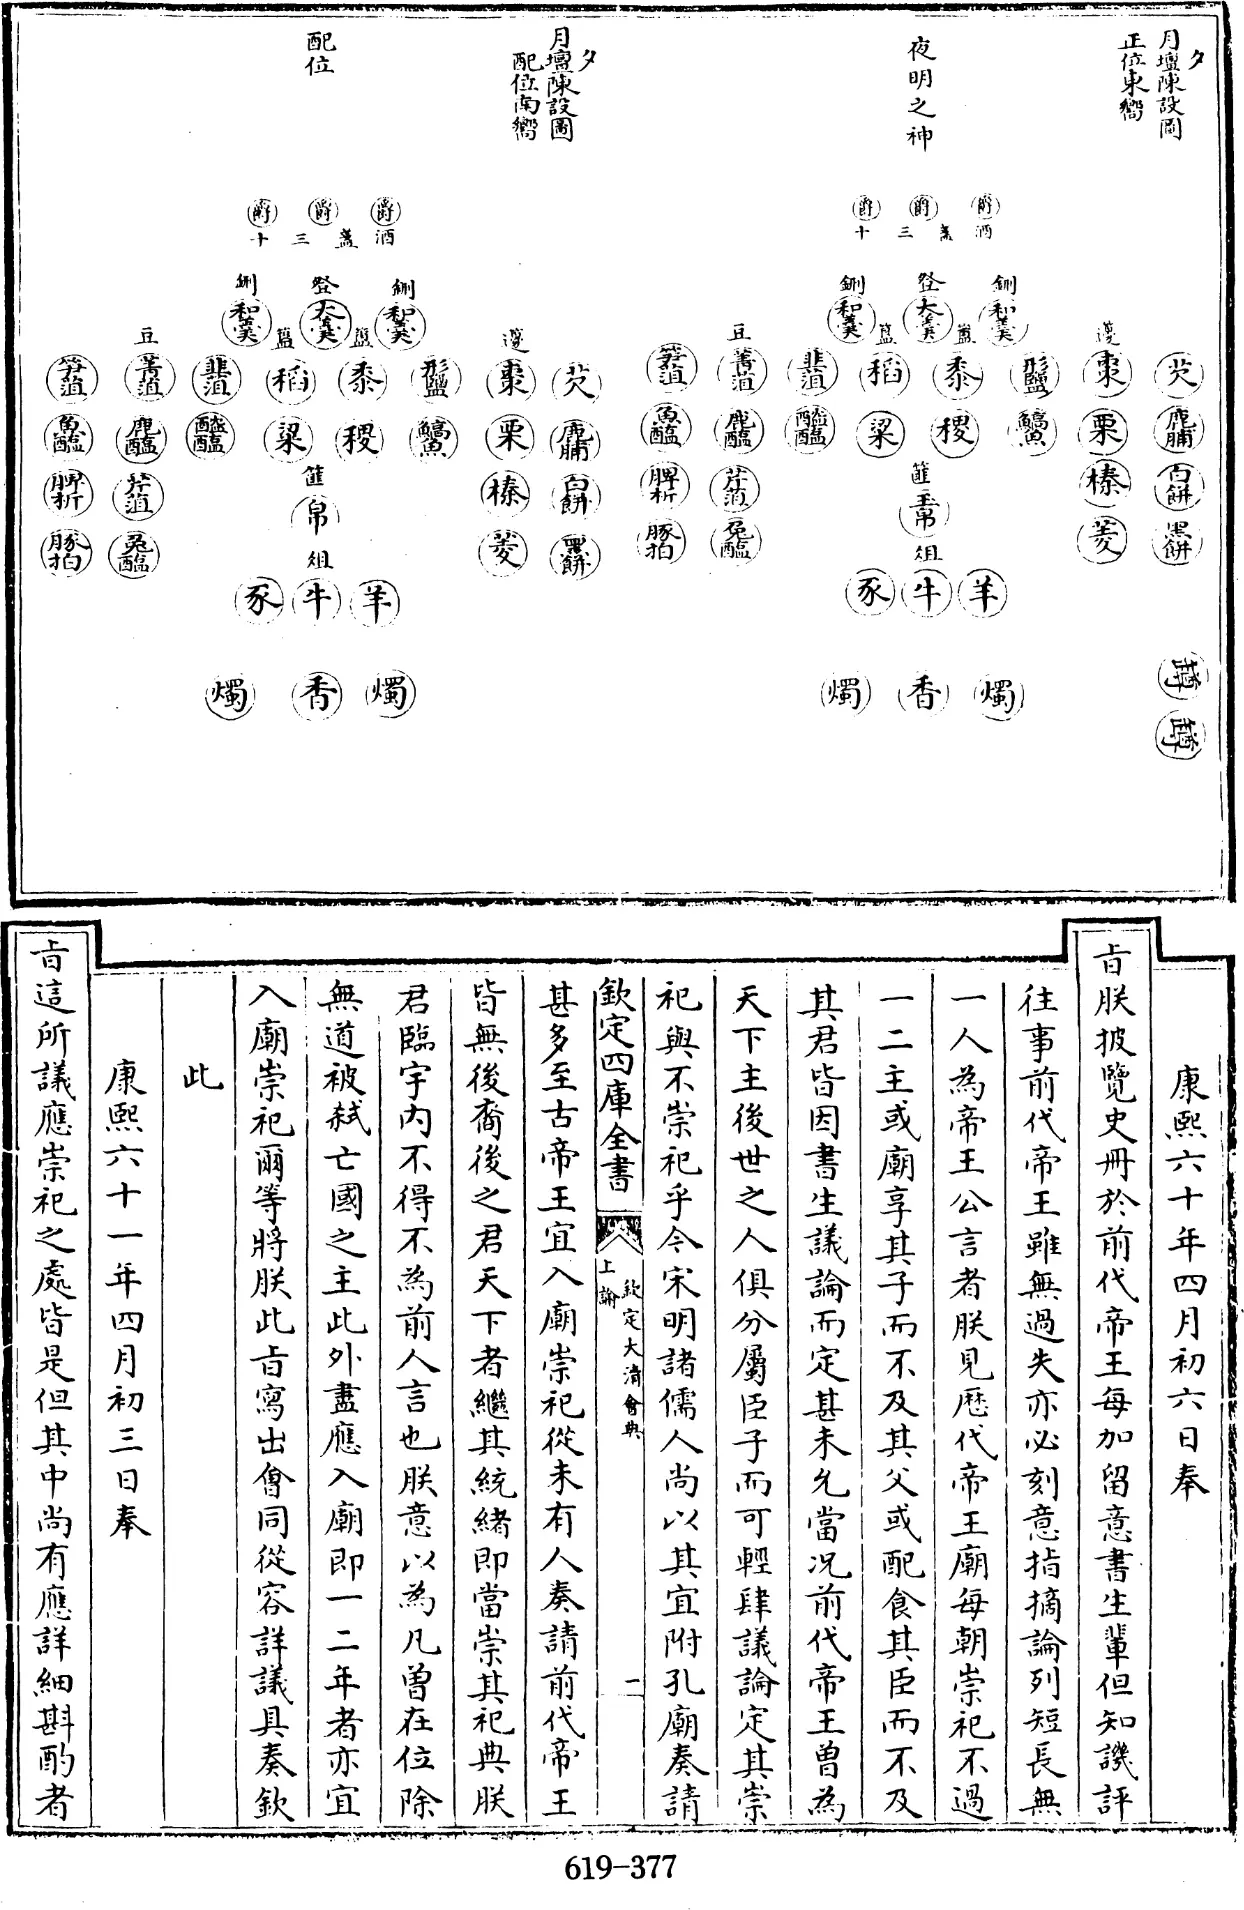 夕
月壇陳設圖
正位東嚮
夜明之神
爵 爵 爵
酒盞三十
鉶 登 鉶
和羹 太羹 和羹
籩 簠 簋 豆
芡 棗 形鹽 黍 稻 韭菹 菁菹 筍菹
鹿脯 栗 鱐魚 稷 粱 醓醢 鹿醢 魚醢
白餅 榛 篚 芹菹 脾析
黑餅 菱 玉帛 兔醢 豚拍
俎
羊 牛 豕
燭 香 燭
罇
罇
夕
月壇陳設圖
配位南嚮
配位
爵 爵 爵
酒盞三十
鉶 登 鉶
和羹 太羹 和羹
籩 簠 簋 豆
芡 棗 形鹽 黍 稻 韭菹 菁菹 筍菹
鹿脯 栗 鱐魚 稷 粱 醓醢 鹿醢 魚醢
白餅 榛 篚 芹菹 脾析
黑餅 菱 帛 兔醢 豚拍
俎
羊 牛 豕
燭 香 燭
康熙六十年四月初六日奉
旨朕披覽史冊於前代帝王每加留意書生輩但知譏評
往事前代帝王雖無過失亦必刻意指摘論列短長無
一人為帝王公言者朕見歷代帝王廟每朝崇祀不過
一二主或廟享其子而不及其父或配食其臣而不及
其君皆因書生議論而定甚未允當況前代帝王曾為
天下主後世之人俱分屬臣子而可輕肆議論定其崇
祀與不崇祀乎今宋明諸儒人尚以其宜附孔廟奏請
欽定四庫全書
欽定大清會典
上諭
二
甚多至古帝王宜入廟崇祀從未有人奏請前代帝王
皆無後裔後之君天下者繼其統緒即當崇其祀典朕
君臨宇內不得不為前人言也朕意以為凡曾在位除
無道被弒亡國之主此外盡應入廟即一二年者亦宜
入廟崇祀爾等將朕此旨寫出會同從容詳議具奏欽
此
康熙六十一年四月初三日奉
旨這所議應崇祀之處皆是但其中尚有應詳細斟酌者
619-377